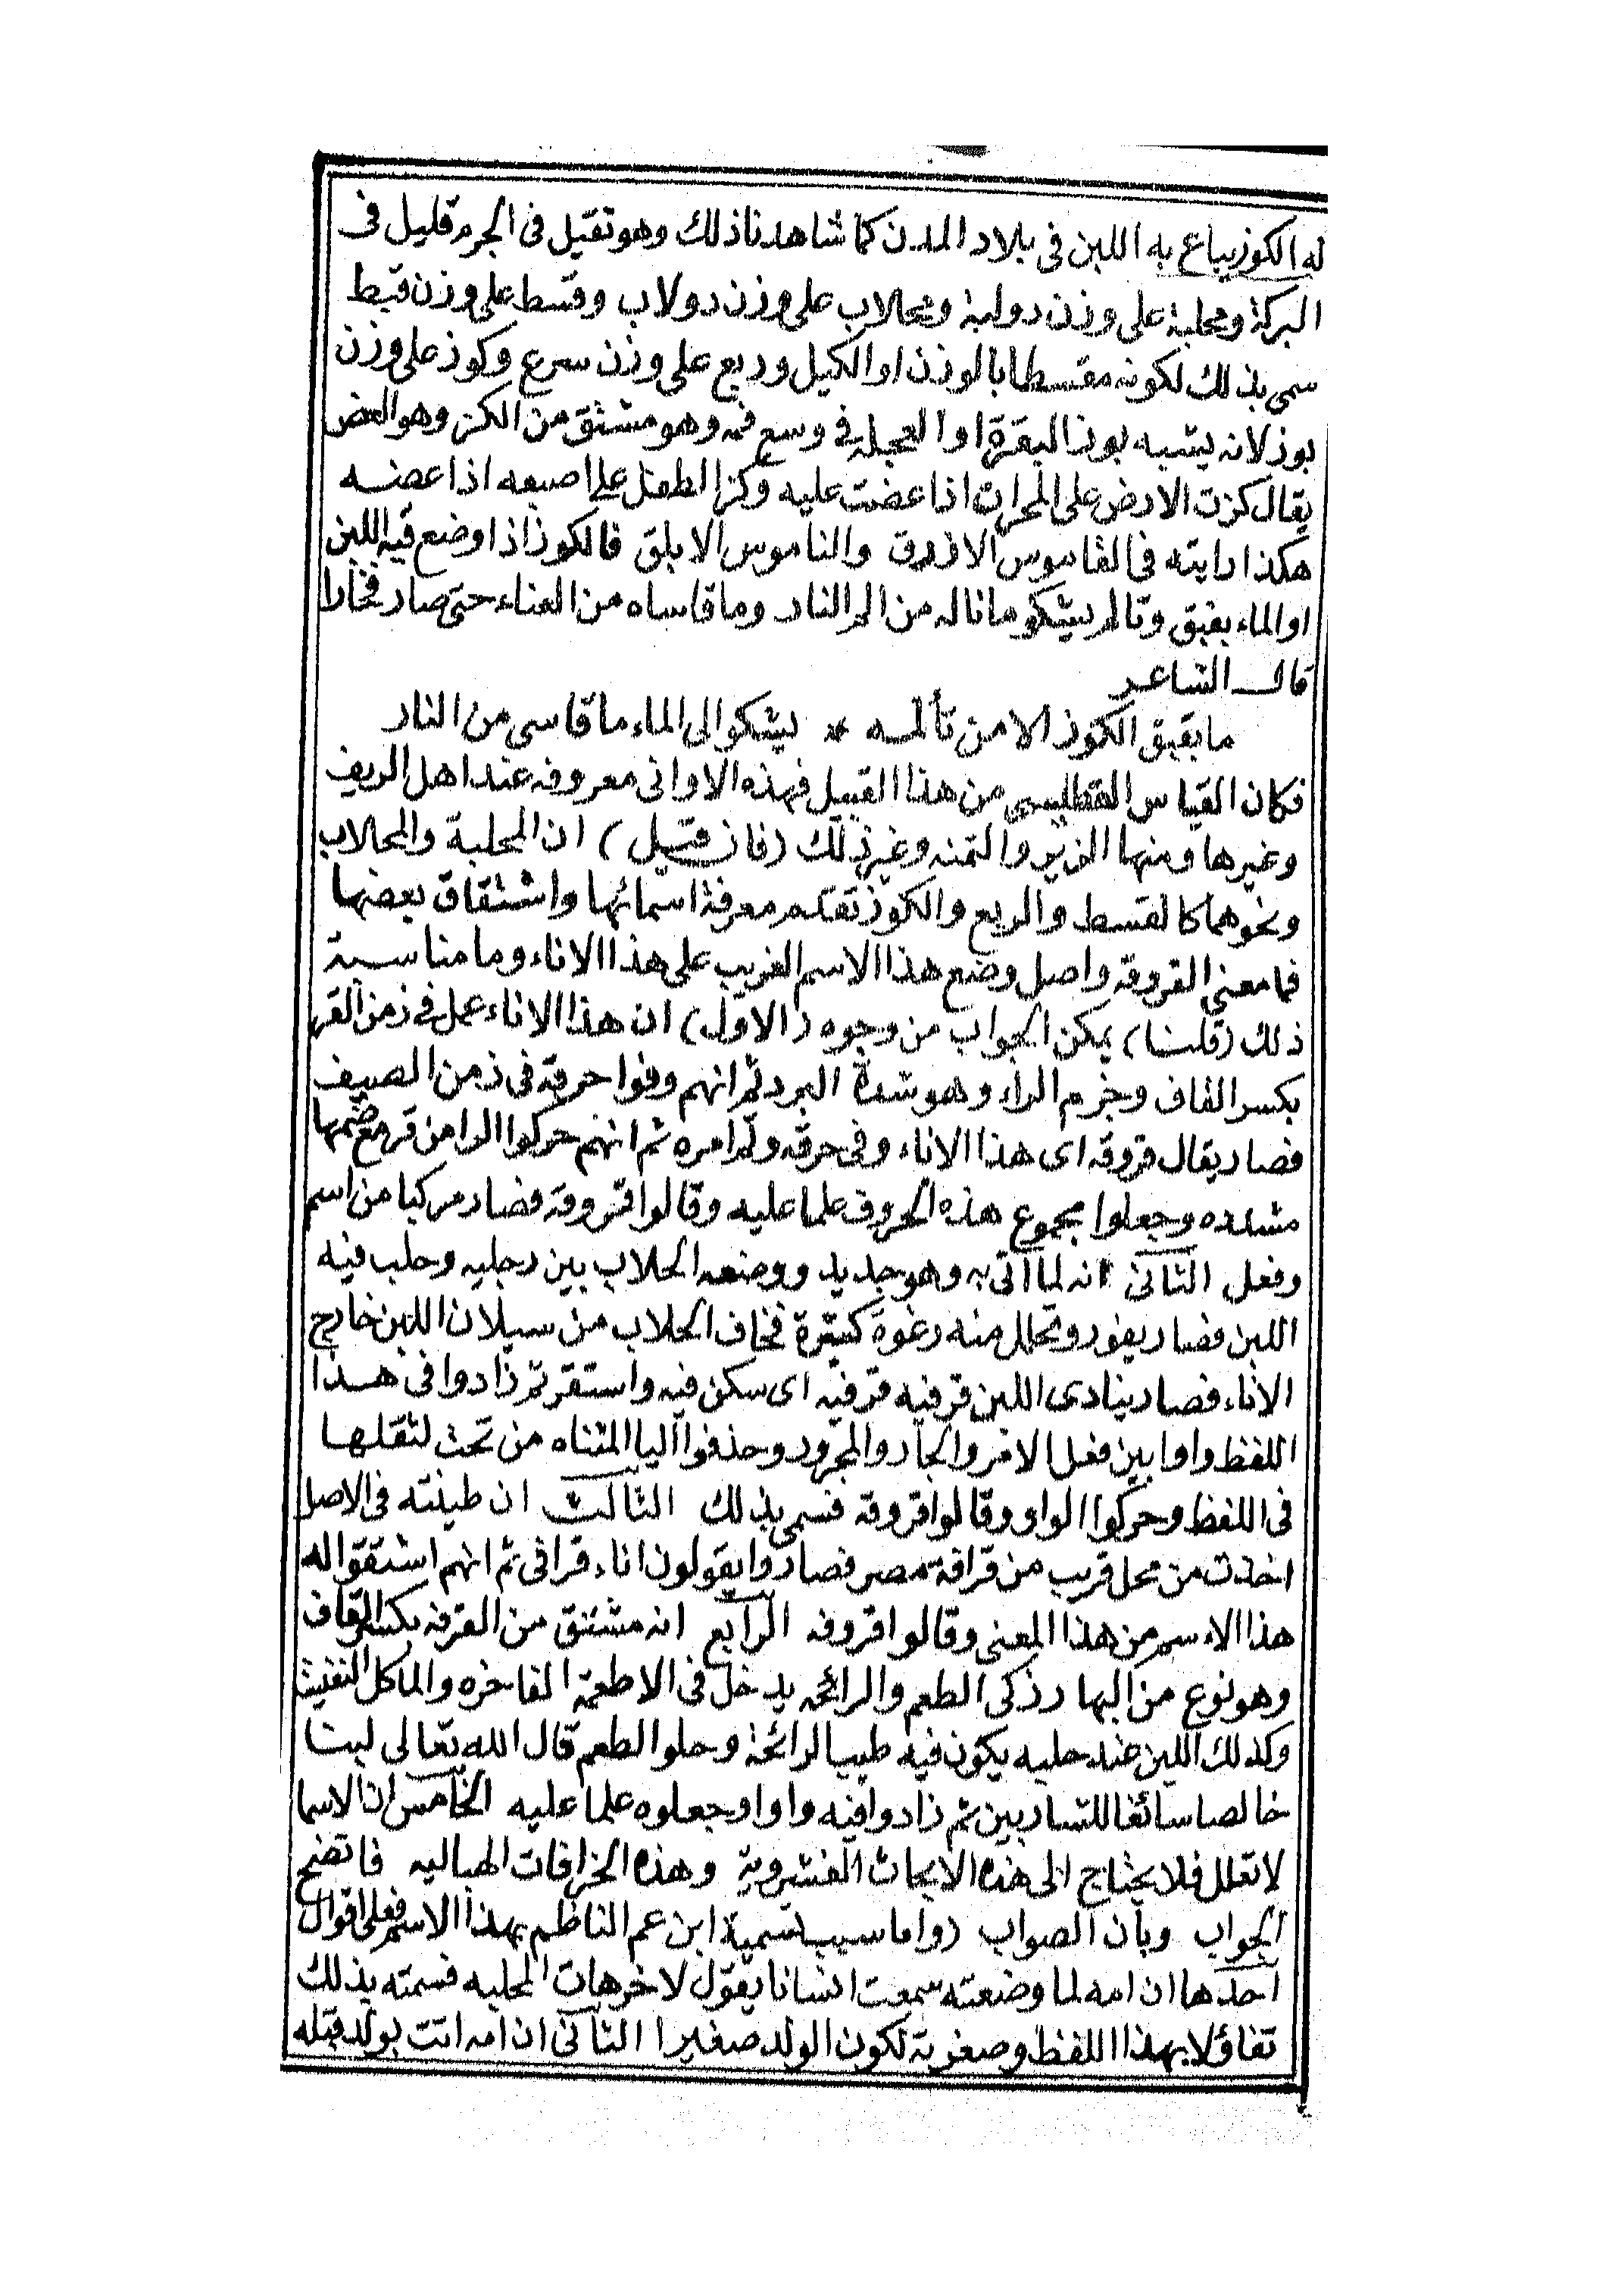 له الكوز يباع به اللبن فى بلاد المدن كما شاهدنا ذلك وهو ثقيل فى الجرم قليل فى
البركة ومحلبة على وزن دولبة ومحلاب على وزن دولاب وقسط على وزن قبط
سمى بذلك لكونه مقسطا بالوزن او الكيل وربع على وزن سرع وكوز على وزن
بوز لانه يشبه بوز البقرة او العجلة فى وسع فمه وهو مشتق من الكز وهو العض
يقال كزت الارض على المحراث اذا عضت عليه وكز الطفل على اصبعه اذا عضه
هكذا رايته فى القاموس الازرق والناموس الابلق فالكوز اذا وضع فيه اللبن
او الماء يقبق وتالم يشكو ما ناله من الم النار وما قاساه من العناء حتى صار فخارا
قال الشاعر
ما يقبق الكوز الا من تألمه * يشكو الى الماء ما قاسى من النار
فكان القياس الفطيسى من هذا القبيل فهذه الاوانى معروفه عند اهل الريف
وغيرها ومنها الزير والتمنه وغير ذلك (فان قيل) ان المحلبة والمحلاب
ونحوهما كالقسط والربع والكوز تقدم معرفة اسمائها واشتقاق بعضها
فما معنى القروفه واصل وضع هذا الاسم الغريب على هذا الاناء وما مناسبة
ذلك (قلنا) يمكن الجواب من وجوه (الاول) ان هذا الاناء عمل فى زمن القر
بكسر القاف وجزم الراء وهو شدة البرد ثم انهم وفوا حرقه فى زمن الصيف
فصار يقال قروفه اى هذا الاناء وفى حرقه وتم امره ثم انهم حركوا الرا من قر مع ضمها
مشدده وجعلوا مجموع هذه الحروف علما عليه وقالوا قروفه فصار مركبا من اسم
وفعل الثانى انه لما اتى به وهو جديد ووضعه الحلاب بين رجليه وحلب فيه
اللبن فصار يفور وتحلل منه رغوة كثيرة فخاف الحلاب من سيلان اللبن خارج
الاناء فصار ينادى اللبن قر فيه قر فيه اى سكن فيه واستقر ثم زادوا فى هذا
اللفظ واوا بين فعل الامر والجار والمجرور وحذفوا اليا المثناه من تحت لثقلها
فى اللفظ وحركوا الواو وقالوا قروفه فسمى بذلك الثالث ان طينته فى الاصل
اخذت من محل قريب من قرافة مصر فصاروا يقولون اناء قرافى ثم انهم اشتقوا له
هذا الاسم من هذا المعنى وقالوا قروفه الرابع انه مشتق من القرفه بكسر القاف
وهو نوع من البهار زكى الطعم والرائحه يدخل فى الاطعمة الفاخره والماكل النفيسة
وكذلك اللبن عند حلبه يكون فيه طيب الرائحة وحلو الطعم قال الله تعالى لبنا
خالصا سائغا للشاربين ثم زادوا فيه واوا وجعلوه علما عليه الخامس ان الاسما
لا تعلل فلا يحتاج الى هذه الابحاث الفشروية وهذه الخرافات الهباليه فاتضح
الجواب وبان الصواب (واما سبب تسمية ابن عم الناظم بهذا الاسم فعلى اقوال
احدها ان امه لما وضعته سمعت انسانا يقول لاخر هات المحلبه فسمته بذلك
تفاؤلا بهذا اللفظ وصغرته لكون الولد صغيرا الثانى ان امه اتت بولد قبله